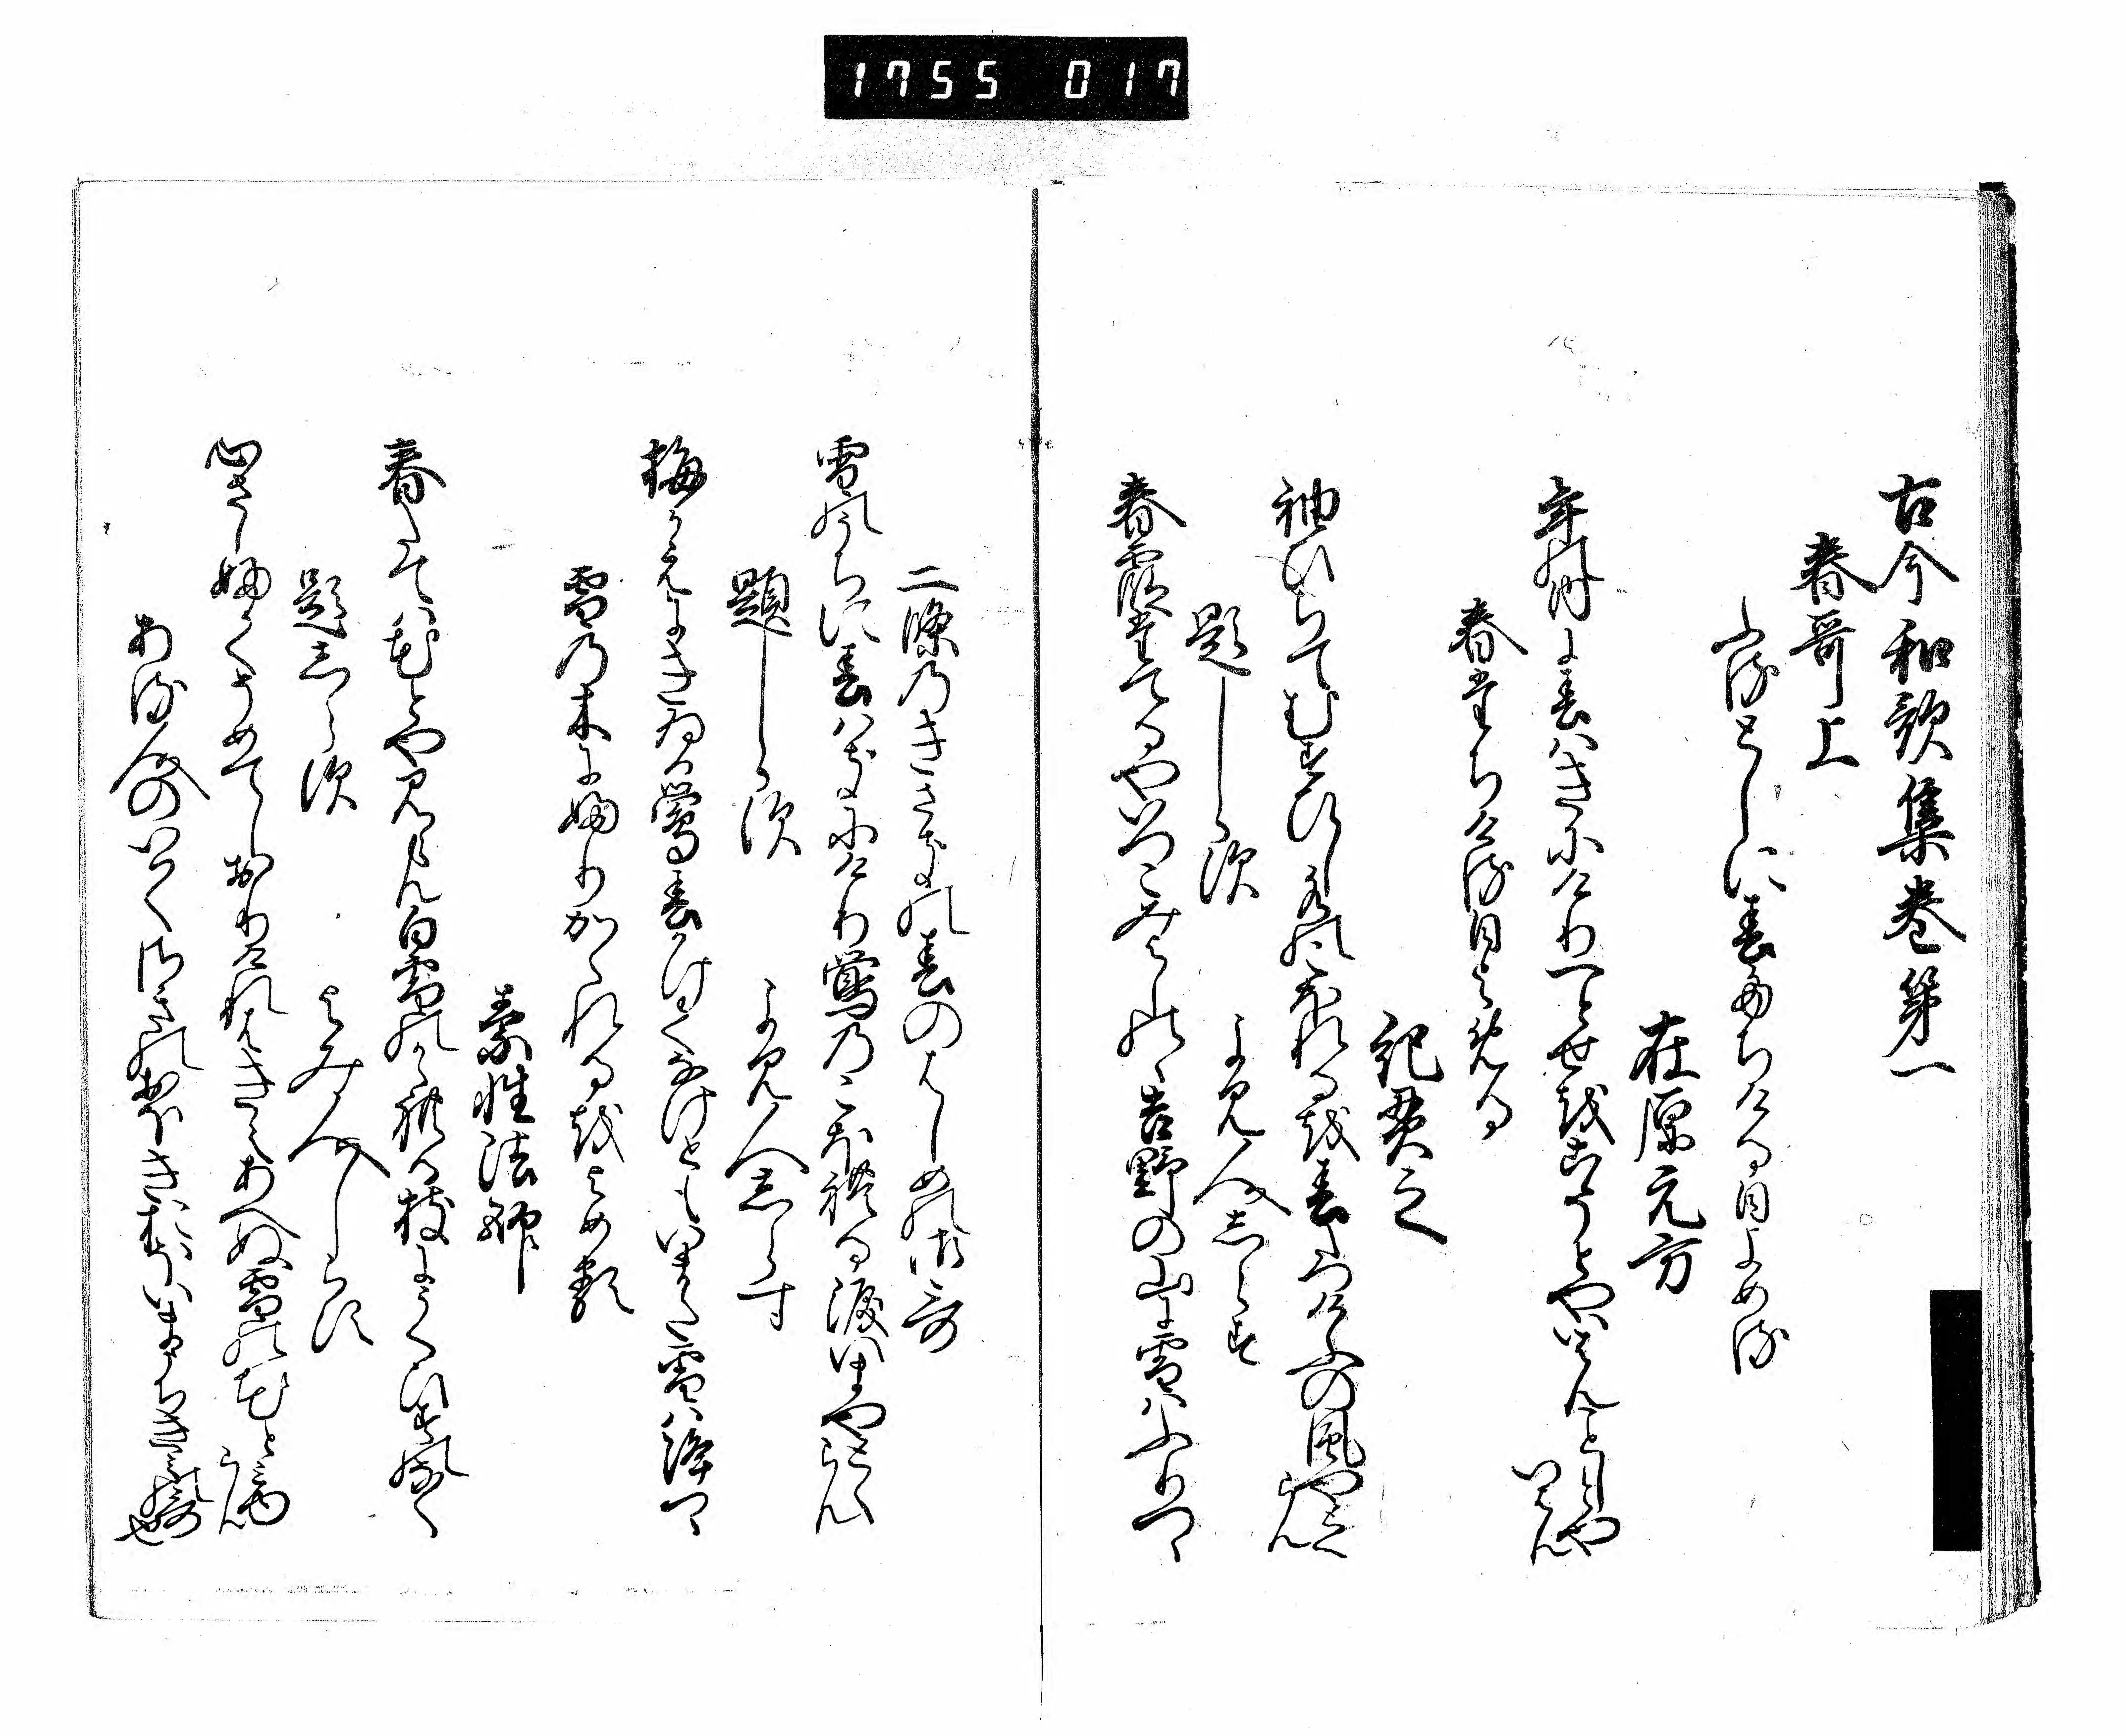 1755 017
古今和歌集巻第一
春哥上
ふるとしに春たちける日よめる
在原元方
年の内に春はきにけり一とせをこそとやいはんことしとや
いはん
春たちける日よめる
紀貫之
袖ひちてむすひし水のこほれるを春たつけふの風やとく
らん
題しらす
よみ人しらす
春霞たてるやいつこみよしのゝ吉野の山に雪はふりつゝ
二條のきさきの春のはしめの御哥
雪の内に春はきにけり鶯のこほれる涙いまやとく
らん
題しらす
よみ人しらす
梅かえにきゐる鶯春かけてなけともいまた雪は降つゝ
雪の木にふりかゝれるをよめる
素性法師
春たては花とや見らん白雪のかゝれる枝にうくひすのなく
題しらす
よみ人しらす
心さしふかくそめてしおりけれはきえあへぬ雪の花と見ゆ
らん
ある人のいはくさきのおほきおほいまうちきみの哥
也